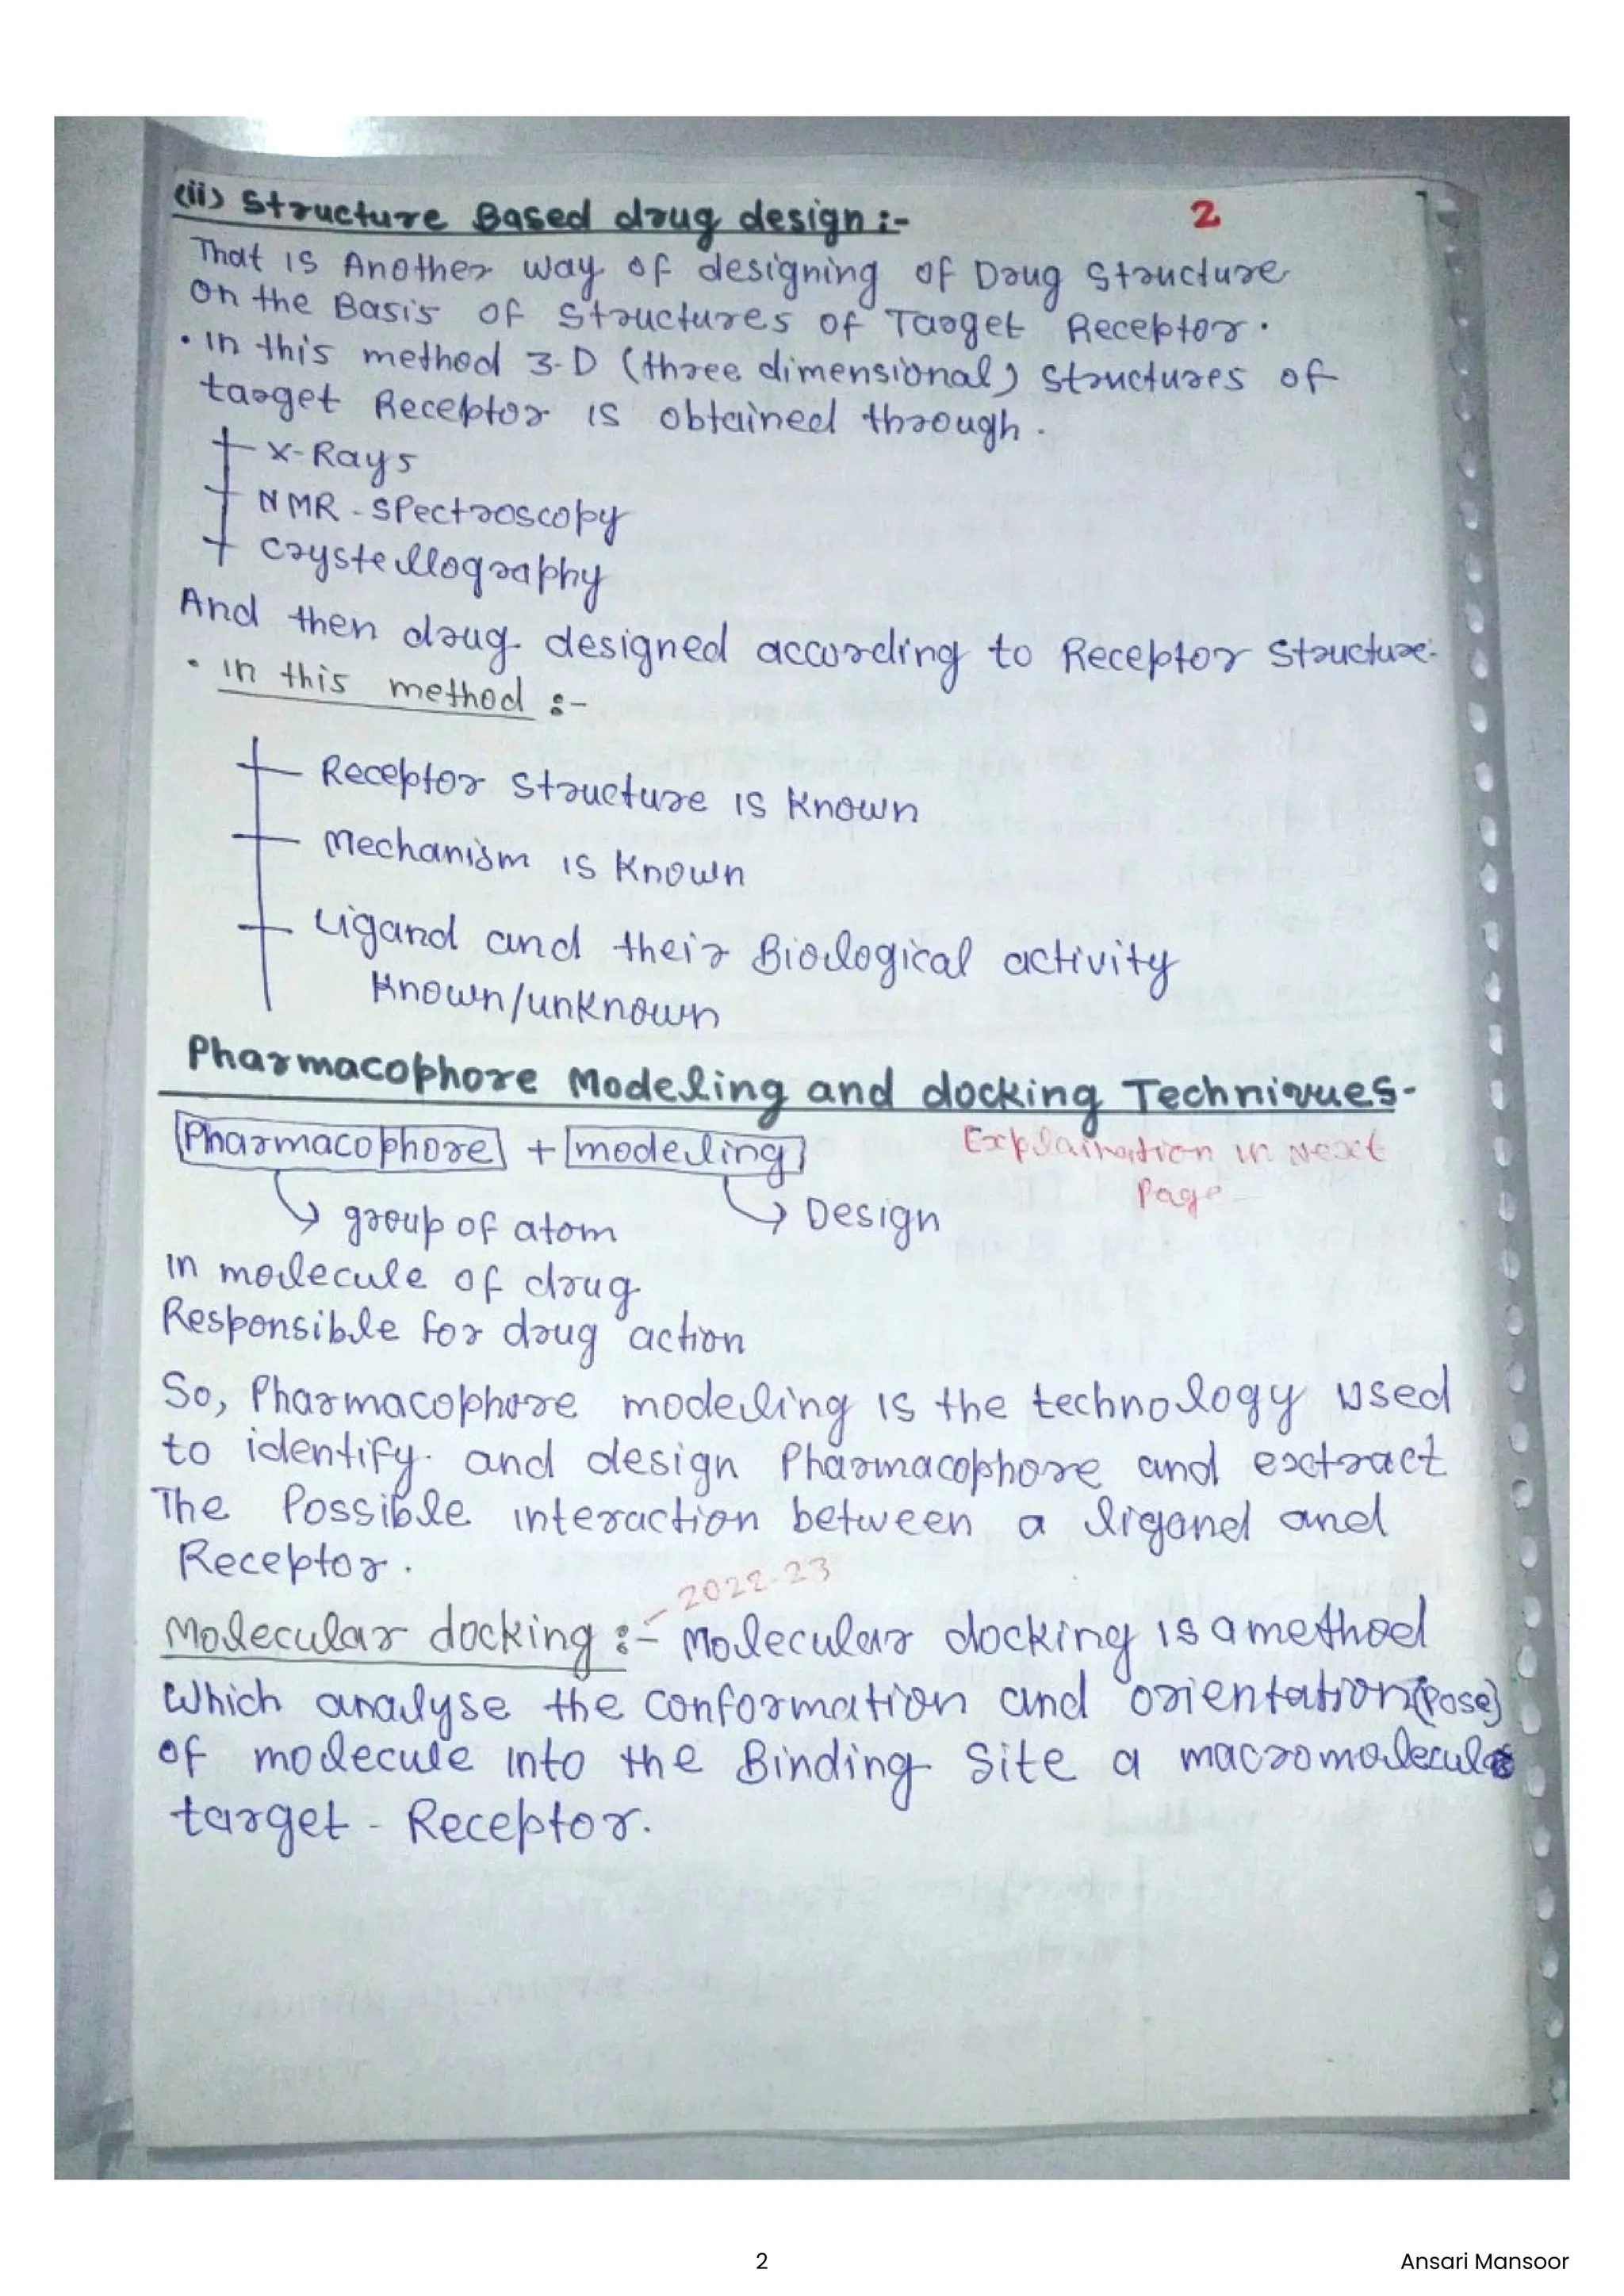 (ii) Structure Based drug design :-
2
That is Another way of designing of Drug Structure
on the Basis of Structures of Target Receptor.
• in this method 3-D (three dimensional) structures of
target Receptor is obtained through.
X-Rays
NMR - Spectroscopy
Crystellography
And then drug designed according to Receptor Structure.
• in this method :-
Receptor Structure is Known
Mechanism is Known
Ligand and their Biological activity
Known/unknown
Pharmacophore Modeling and docking Techniques-
Pharmacophore + modeling
Explaination in Next
Page
group of atom
Design
in molecule of drug
Responsible for drug action
So, Pharmacophore modeling is the technology used
to identify and design Pharmacophore and extract
The Possible interaction between a ligand and
Receptor.
2022-23
Molecular docking :- Molecular docking is a method
Which analyse the conformation and orientation (Pose)
of molecule into the Binding Site a macromolecule
target - Receptor.
2
Ansari Mansoor